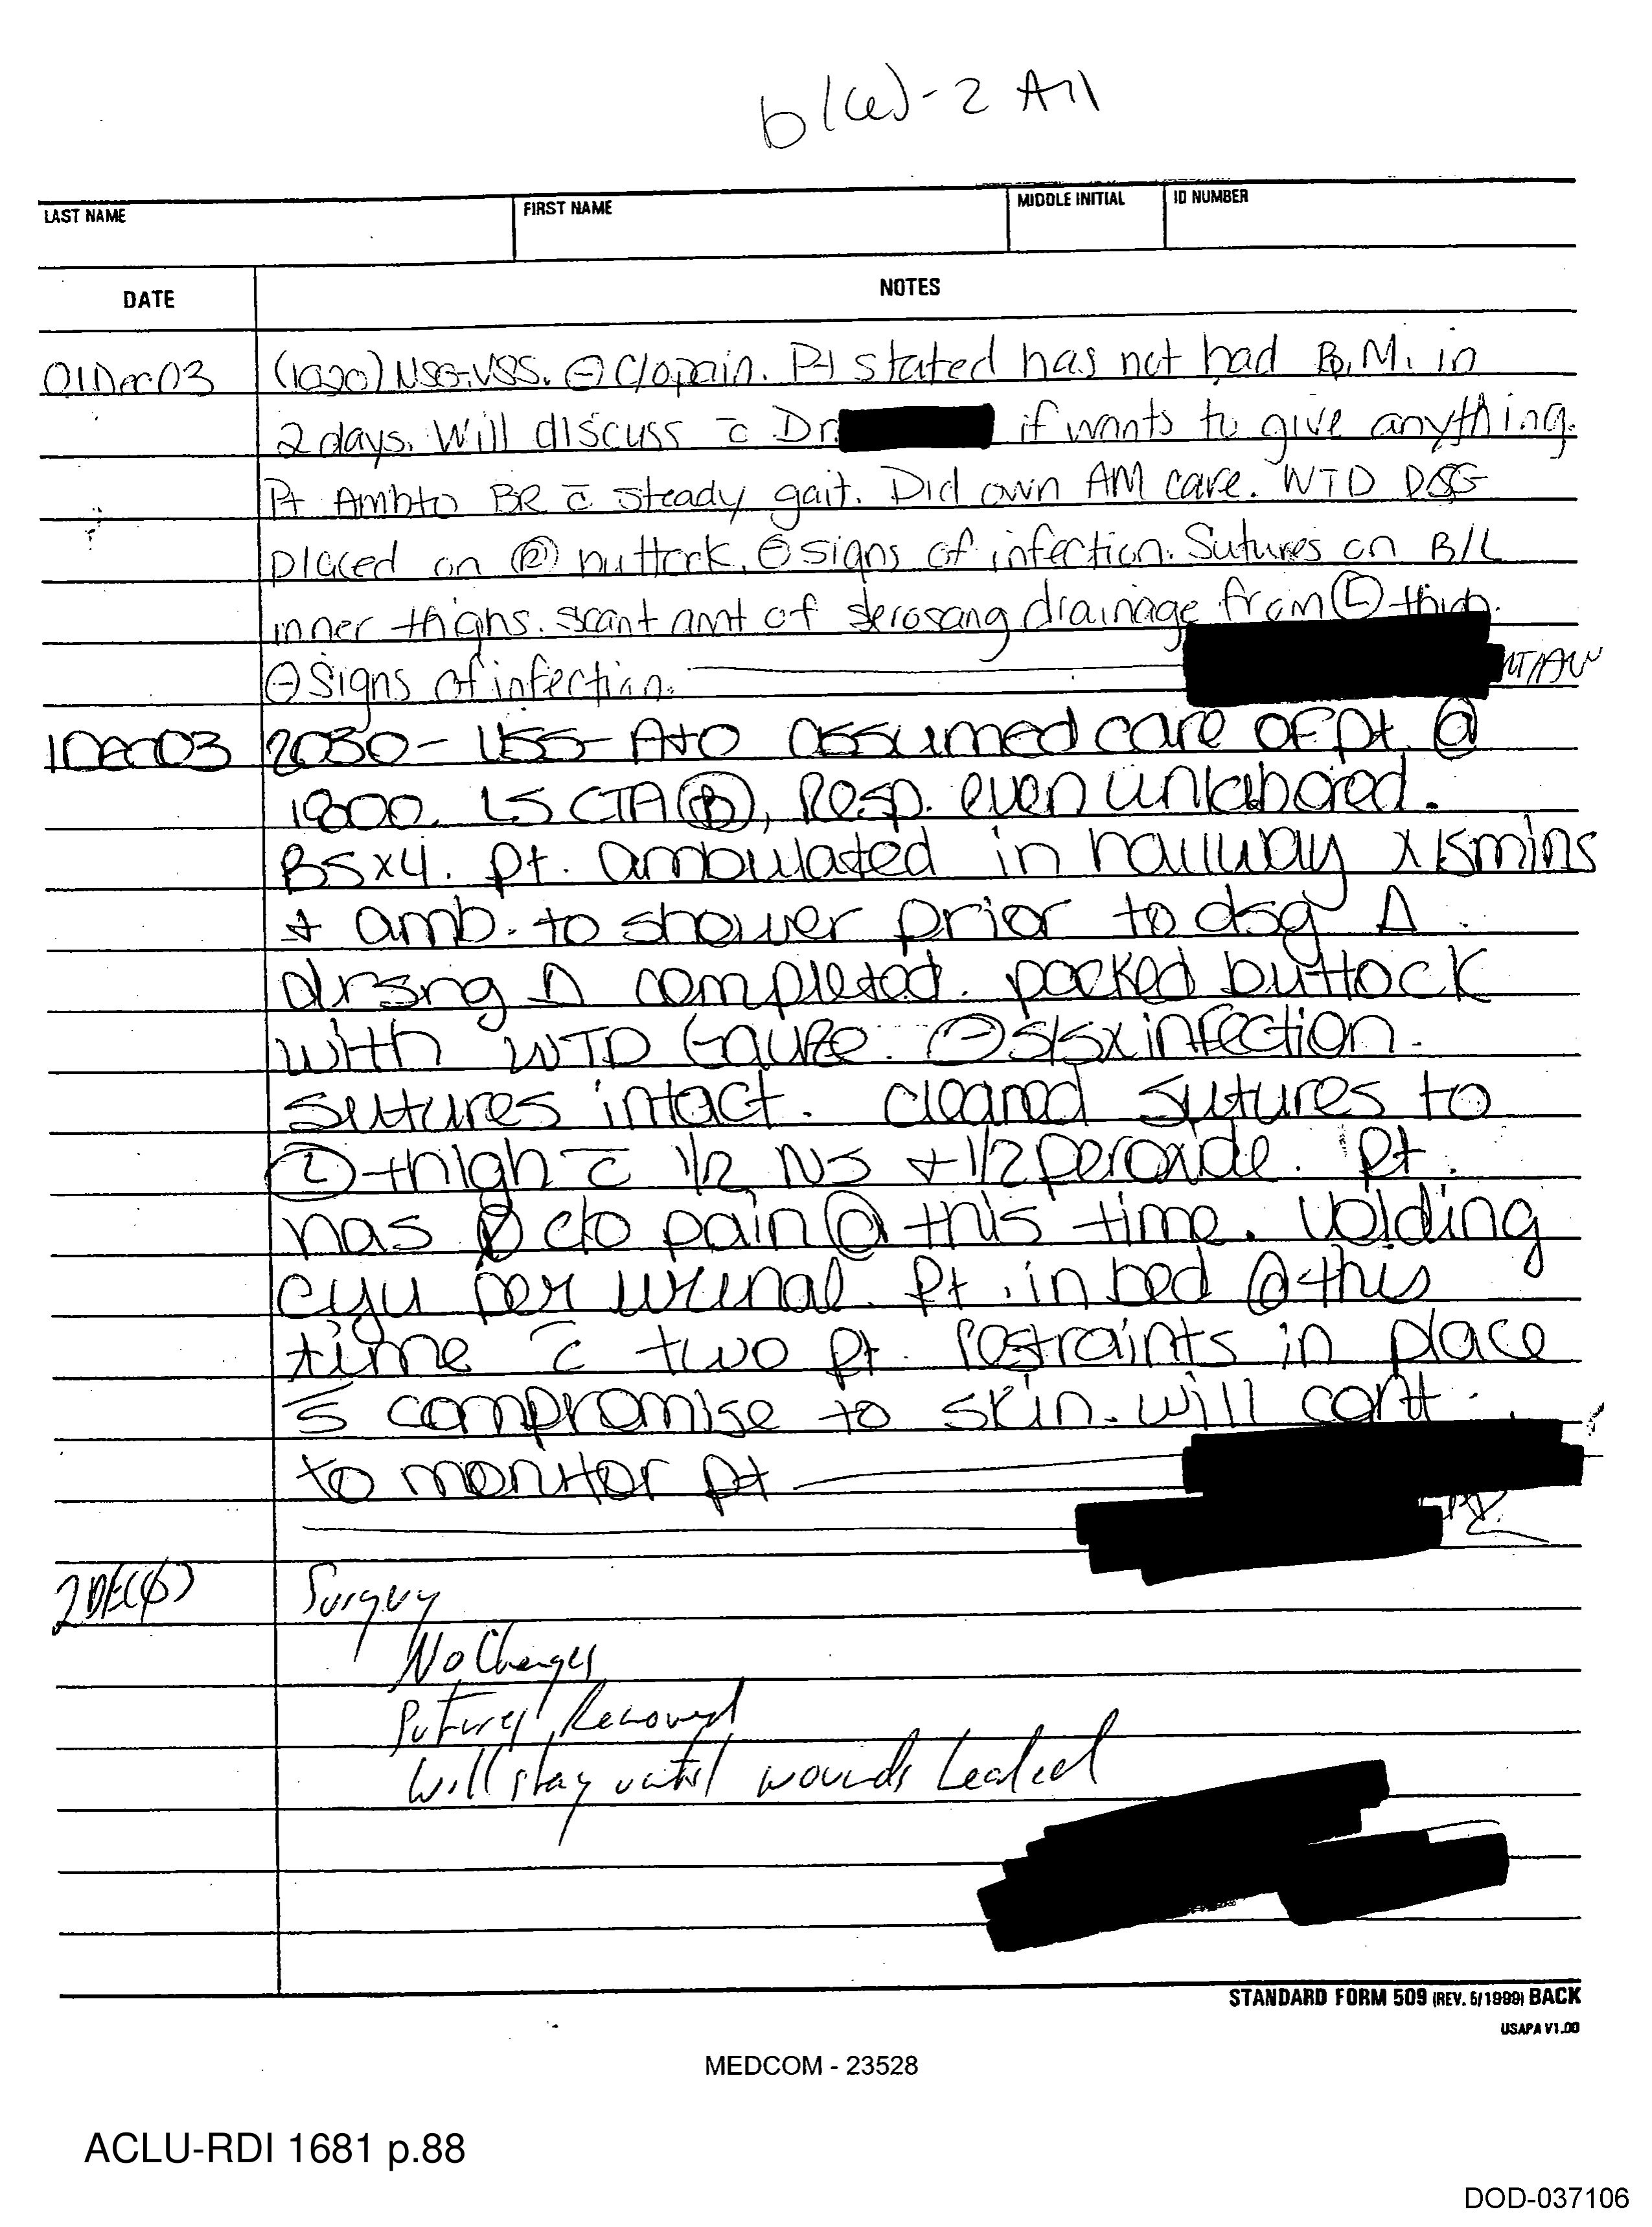 b(6)-2 All
LAST NAME FIRST NAME MIDDLE INITIAL ID NUMBER
DATE NOTES
01Dec03 (1020) NSG: VSS. ⊖ C/o pain. Pt stated has not had B.M. in
2 days. Will discuss c̄ Dr. if wants to give anything.
Pt Amb to BR c̄ steady gait. Did own AM care. WTD DSG
placed on Ⓡ buttock. ⊖ signs of infection. Sutures on B/L
inner thighs. scant amt of serosang drainage from Ⓛ thigh.
⊖ Signs of infection.
1Dec03 2030- VSS- A+O assumed care of pt. @
1800. LS CTA Ⓑ, Resp. even unlabored.
BSx4. Pt. ambulated in hallway x 15mins
+ amb. to shower prior to dsg Δ.
drsng Δ completed. packed buttock
with WTD Gauze. ⊖ s/sx infection.
sutures intact. cleaned sutures to
Ⓛ thigh c̄ 1/2 NS + 1/2 peroxide. Pt.
has Ø c/o pain @ this time. Voiding
cyu per urinal. Pt. in bed @ this
time c̄ two pt. restraints in place
s̄ compromise to skin. will cont.
to monitor pt
2DEC03 Surgery
No Changes
Sutures Removed
Will stay until wounds healed
STANDARD FORM 509 (REV. 5/1999) BACK
USAPA V1.00
MEDCOM - 23528
ACLU-RDI 1681 p.88
DOD-037106